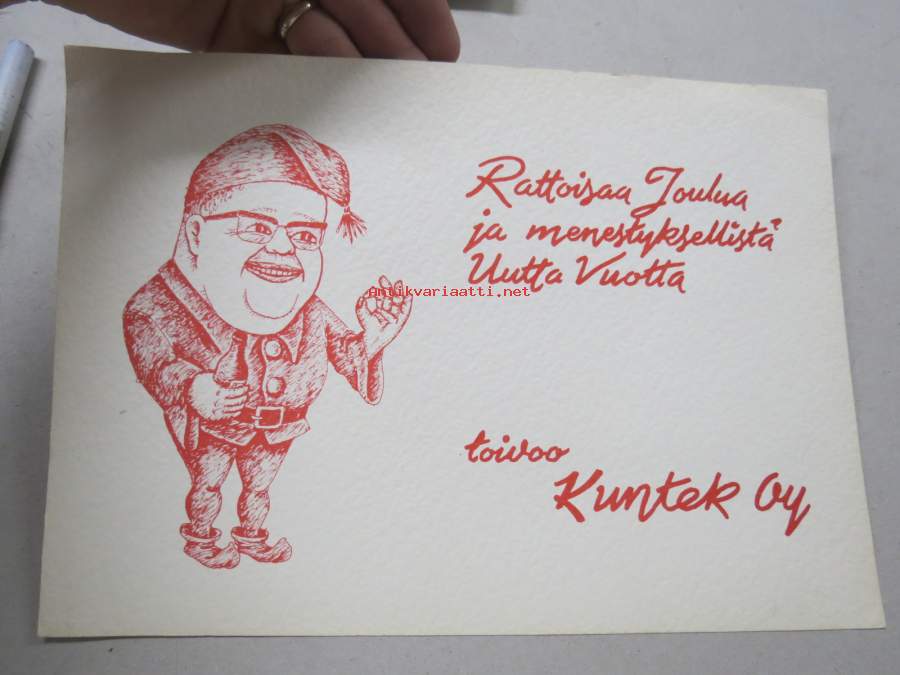 Rattoisaa Joulua
ja menestyksellistä
Uutta Vuotta
Antikvariaatti.net
toivoo
Kuntek Oy